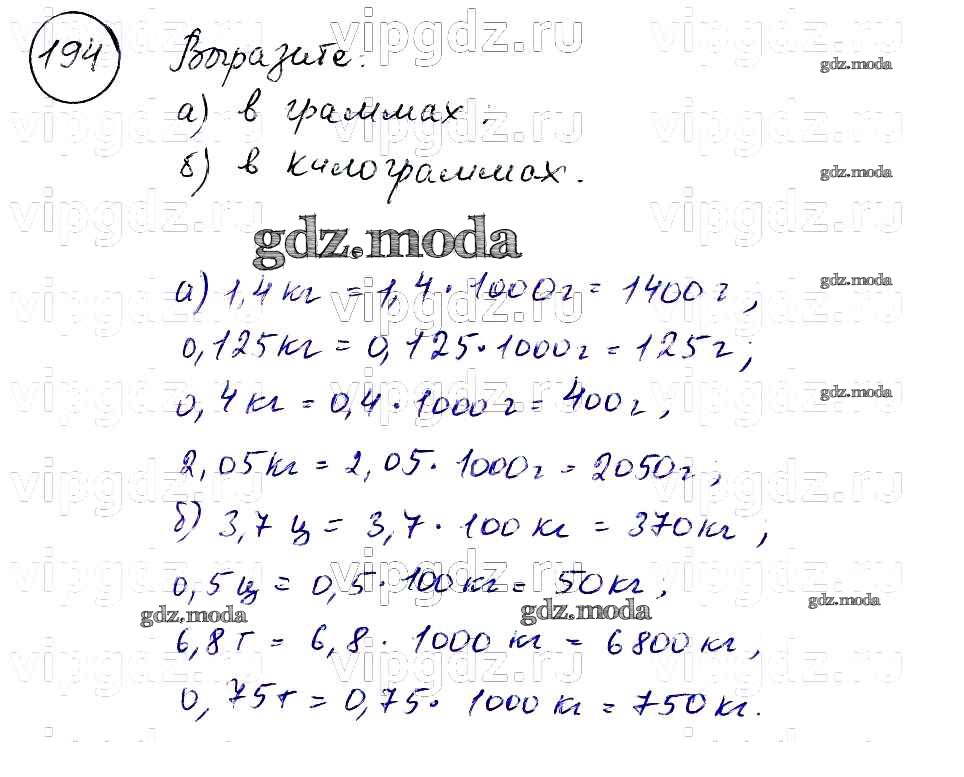 194 Выразите:
vipgdz.ru vipgdz.ru vipgdz.ru
gdz.moda
а) в граммах;
vipgdz.ru vipgdz.ru vipgdz.ru
б) в килограммах.
gdz.moda
vipgdz.ru vipgdz.ru vipgdz.ru
gdz.moda
а) 1,4 кг = 1,4 · 1000 г = 1400 г,
gdz.moda
vipgdz.ru vipgdz.ru vipgdz.ru
0,125 кг = 0,125 · 1000 г = 125 г;
0,4 кг = 0,4 · 1000 г = 400 г,
gdz.moda
vipgdz.ru vipgdz.ru vipgdz.ru
2,05 кг = 2,05 · 1000 г = 2050 г;
vipgdz.ru vipgdz.ru vipgdz.ru
б) 3,7 ц = 3,7 · 100 кг = 370 кг;
0,5 ц = 0,5 · 100 кг = 50 кг;
vipgdz.ru vipgdz.ru vipgdz.ru
gdz.moda gdz.moda gdz.moda
6,8 т = 6,8 · 1000 кг = 6800 кг,
vipgdz.ru vipgdz.ru vipgdz.ru
0,75 т = 0,75 · 1000 кг = 750 кг.
vipgdz.ru vipgdz.ru vipgdz.ru